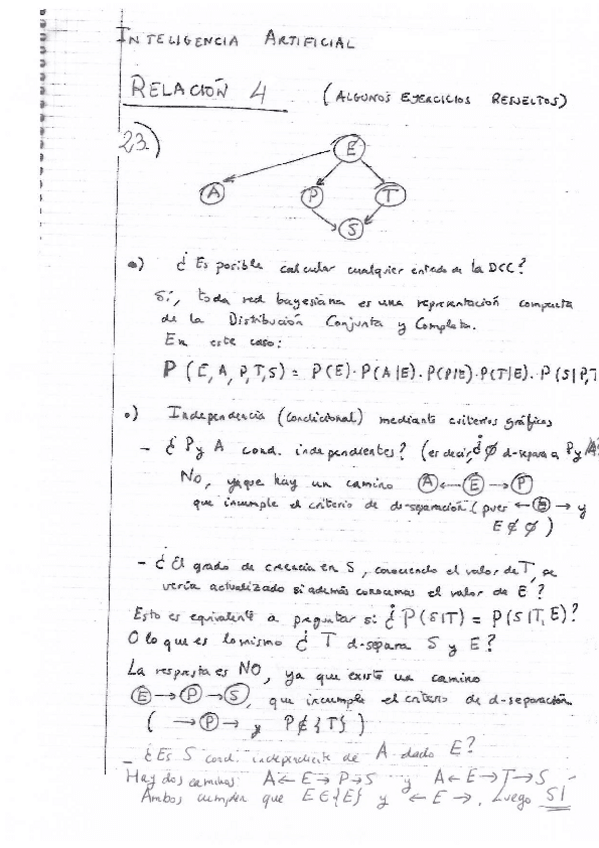 INTELIGENCIA ARTIFICIAL
RELACIÓN 4 (ALGUNOS EJERCICIOS RESUELTOS)
23)
E
A P T
S
a) ¿Es posible calcular cualquier entrada de la DCC?
Sí, toda red bayesiana es una representación compacta
de la Distribución Conjunta y Completa.
En este caso:
P(E,A,P,T,S) = P(E)·P(A|E)·P(P|E)·P(T|E)·P(S|P,T
•) Independencia (condicional) mediante criterios gráficos
- ¿P y A cond. independientes? (es decir, ¿∅ d-separa a P y A?
No, ya que hay un camino A ← E → P
que incumple el criterio de d-separación (pues ← E → y
E ∉ ∅)
- ¿El grado de creencia en S, conociendo el valor de T, se
vería actualizado si además conocemos el valor de E?
Esto es equivalente a preguntar si ¿P(S|T) = P(S|T,E)?
O lo que es lo mismo ¿T d-separa S y E?
La respuesta es NO, ya que existe un camino
E → P → S, que incumple el criterio de d-separación
( → P → y P ∉ {T} )
- ¿Es S cond. independiente de A dado E?
Hay dos caminos A ← E → P → S y A ← E → T → S
Ambos cumplen que E ∈ {E} y ← E →. Luego SÍ